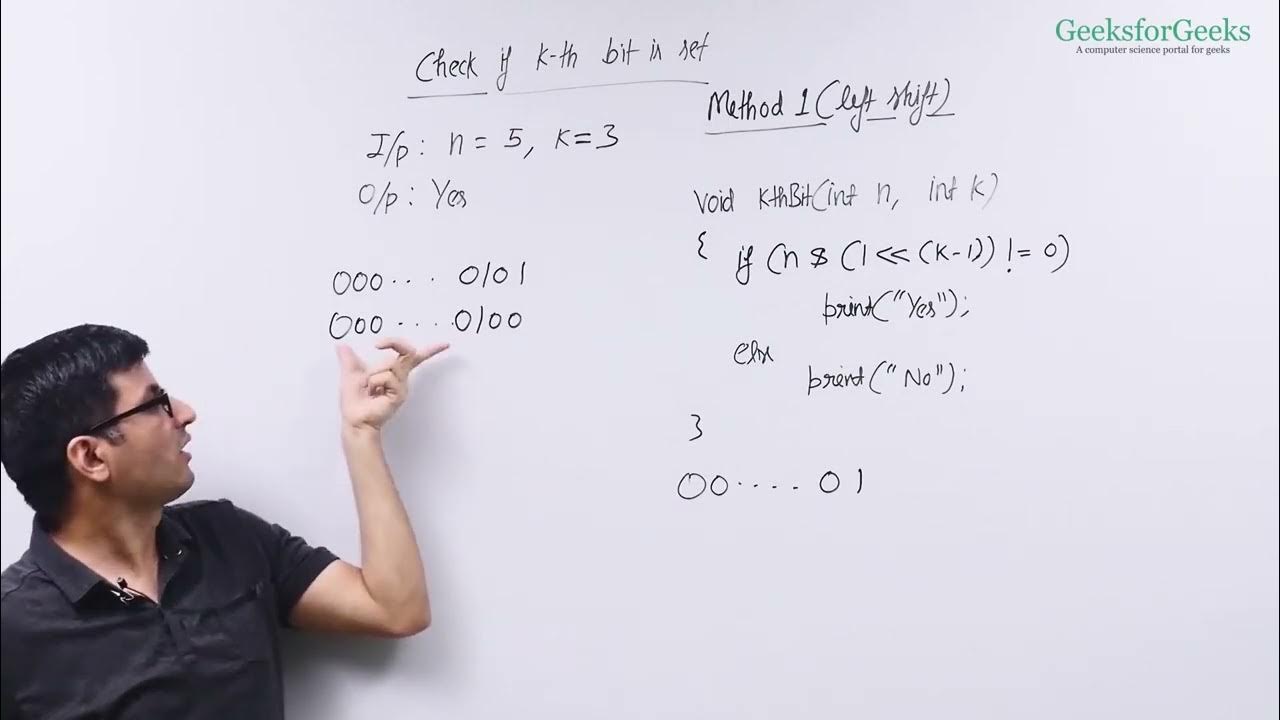 GeeksforGeeks
A computer science portal for geeks
Check if k-th bit is set
I/p: n = 5, k=3
O/p: Yes
000.... 0101
000.....0100
Method 1 (left shift)
void kthBit(int n, int k)
{ if (n & (1 << (k-1)) != 0)
print("Yes");
else
print("No");
}
00.... 01